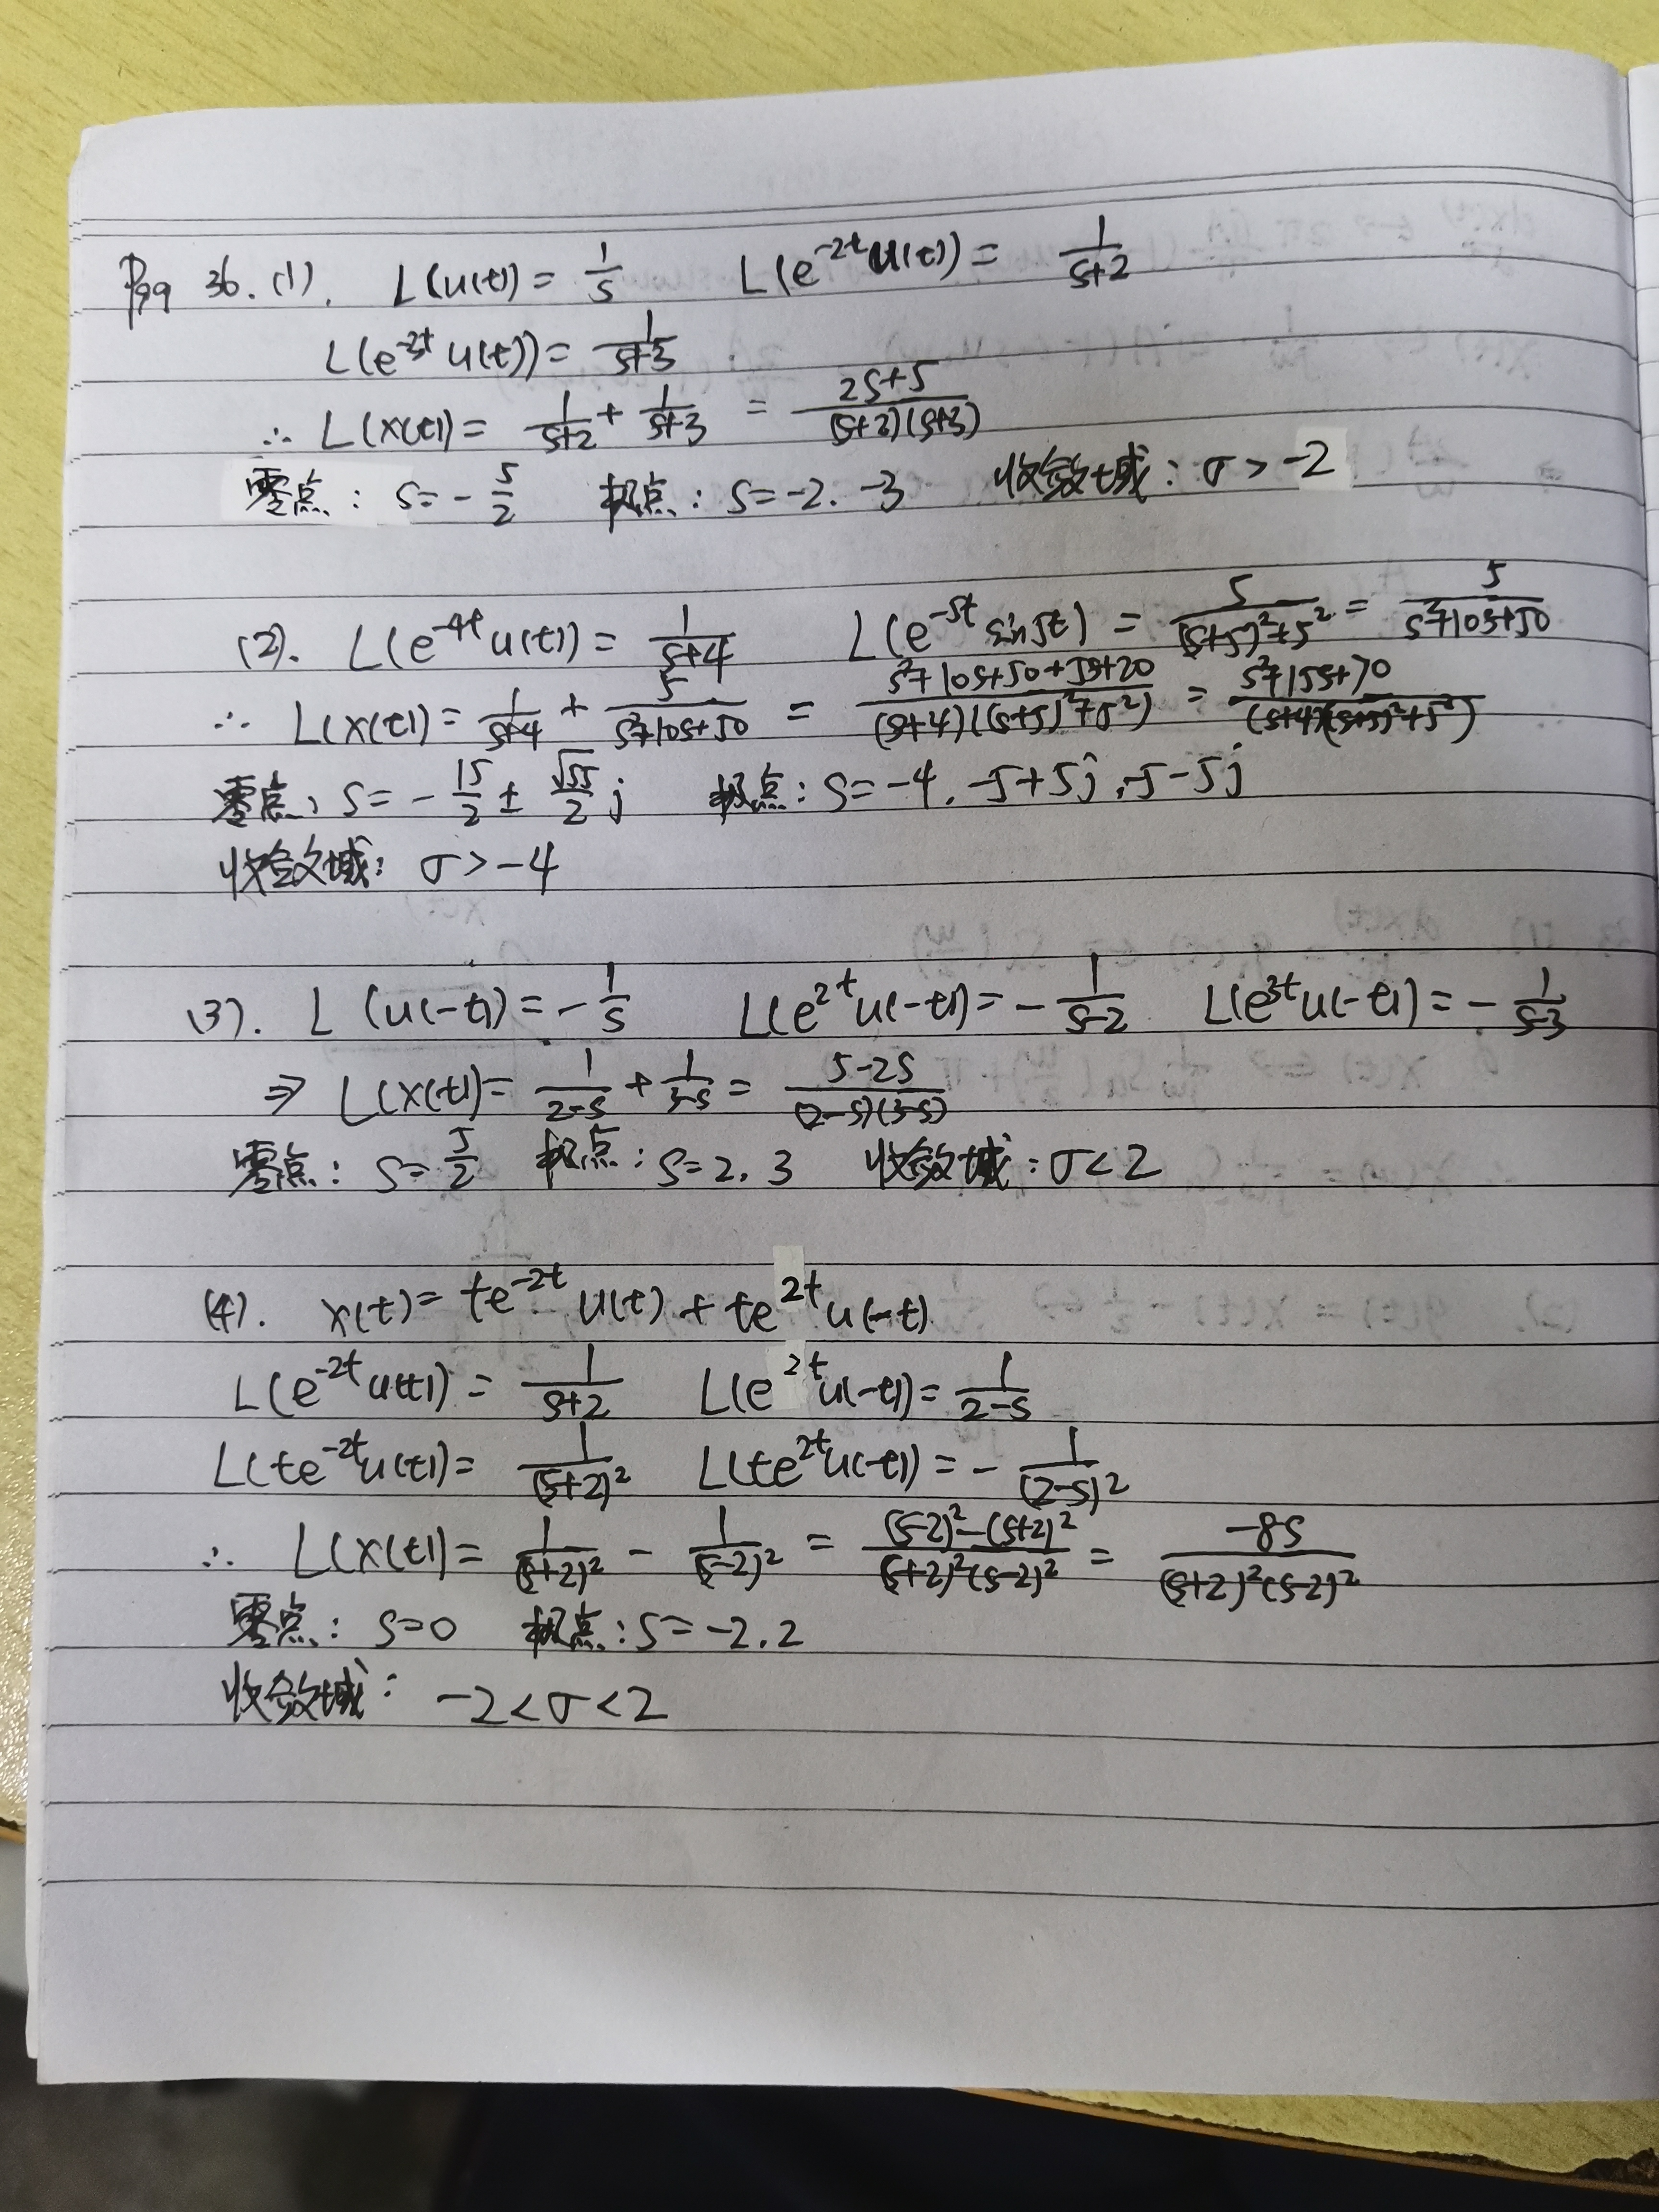 P99 36. (1). L(u(t)) = 1/s L(e^{-2t}u(t)) = 1/(s+2)
L(e^{-3t}u(t)) = 1/(s+3)
∴ L(x(t)) = 1/(s+2) + 1/(s+3) = (2s+5)/((s+2)(s+3))
零点: s = -5/2 极点: s = -2. -3 收敛域: σ > -2
(2). L(e^{-4t}u(t)) = 1/(s+4) L(e^{-5t}sin5t) = 5/((s+5)²+5²) = 5/(s²+10s+50)
∴ L(x(t)) = 1/(s+4) + 5/(s²+10s+50) = (s²+10s+50+5s+20)/((s+4)((s+5)²+5²)) = (s²+15s+70)/((s+4)((s+5)²+5²))
零点: s = -15/2 ± √55/2 j 极点: s = -4. -5+5j, -5-5j
收敛域: σ > -4
(3). L(u(-t)) = -1/s L(e^{2t}u(-t)) = -1/(s-2) L(e^{3t}u(-t)) = -1/(s-3)
⇒ L(x(t)) = 1/(2-s) + 1/(3-s) = (5-2s)/((2-s)(3-s))
零点: s = 5/2 极点: s = 2. 3 收敛域: σ < 2
(4). x(t) = te^{-2t}u(t) + te^{2t}u(-t)
L(e^{-2t}u(t)) = 1/(s+2) L(e^{2t}u(-t)) = 1/(2-s)
L(te^{-2t}u(t)) = 1/(s+2)² L(te^{2t}u(-t)) = -1/(2-s)²
∴ L(x(t)) = 1/(s+2)² - 1/(s-2)² = ((s-2)²-(s+2)²)/((s+2)²(s-2)²) = -8s/((s+2)²(s-2)²)
零点: s = 0 极点: s = -2. 2
收敛域: -2 < σ < 2